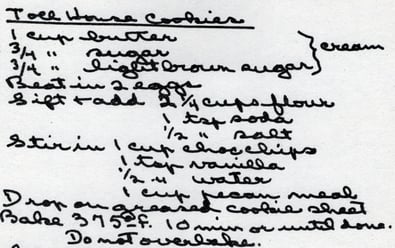 Toll House Cookies
1 cup butter
3/4 " sugar } cream
3/4 " light brown sugar
Beat in 2 eggs
Sift + add 2 1/4 cups flour
1 tsp soda
1/2 " salt
Stir in 1 cup choc chips
1 tsp vanilla
1/2 " water
1 cup pecan meal
Drop on greased cookie sheet
Bake 375° F. 10 min or until done.
Do not overbake.